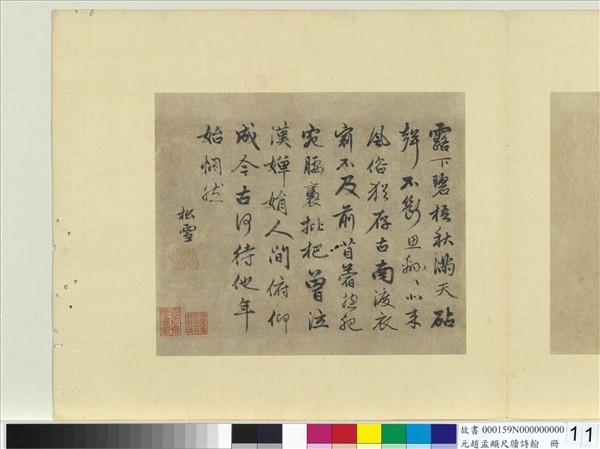 露下碧梧秋滿天砧
聲不斷思綿〻北來
風俗猶存古南渡衣
冠不及前苜蓿總肥
宛腰褭枇杷曾泣
漢嬋娟人間俯仰
成今古何待他年
始惘然
松雪
故書 000159N000000000
元趙孟頫尺牘詩翰 冊
11